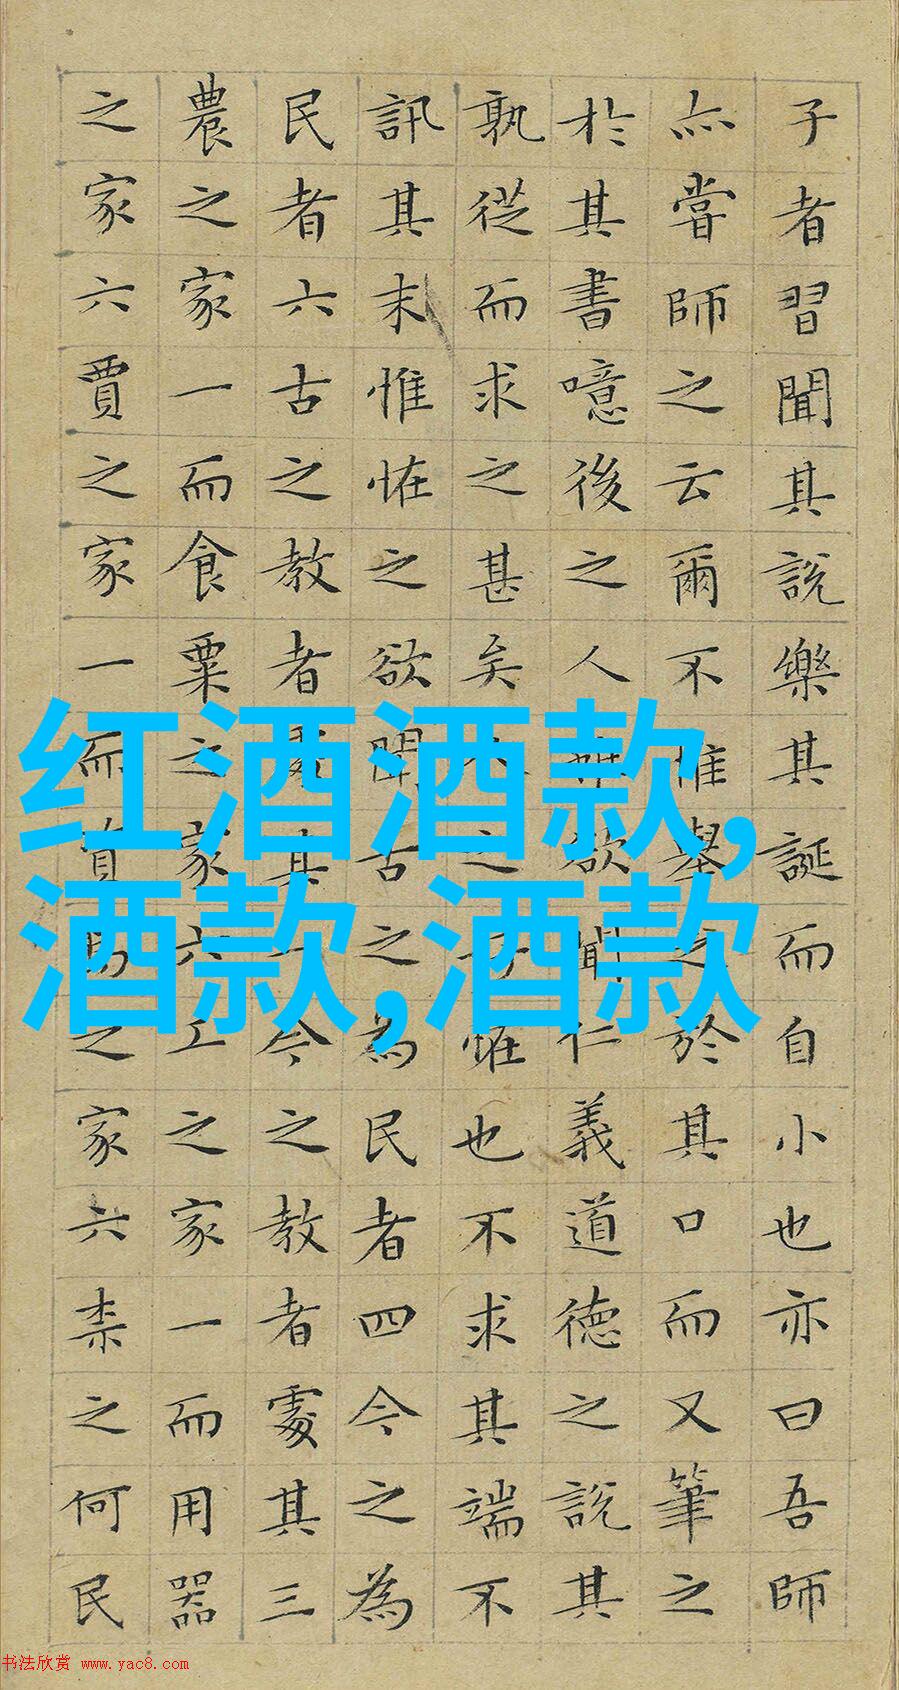 红酒酒款,
酒款,酒款
子者習聞其說樂其誕而自小也亦曰吾師
亦嘗師之云爾不惟舉之於其口而又筆之
於其書噫後之人欲聞仁義道德之說其
孰從而求之甚矣之怪也不求其端不
訊其末惟怪之欲聞古之為民者四今之為
民者六古之教者其一今之教者處其三
農之家一而食粟之家六工之家一而用器
之家六賈之家一而之家六柰之何民
书法欣赏 www.yac8.com